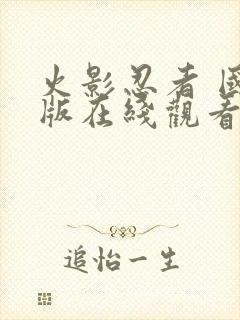 火影忍者 國
版在綫觀看
追怡一生